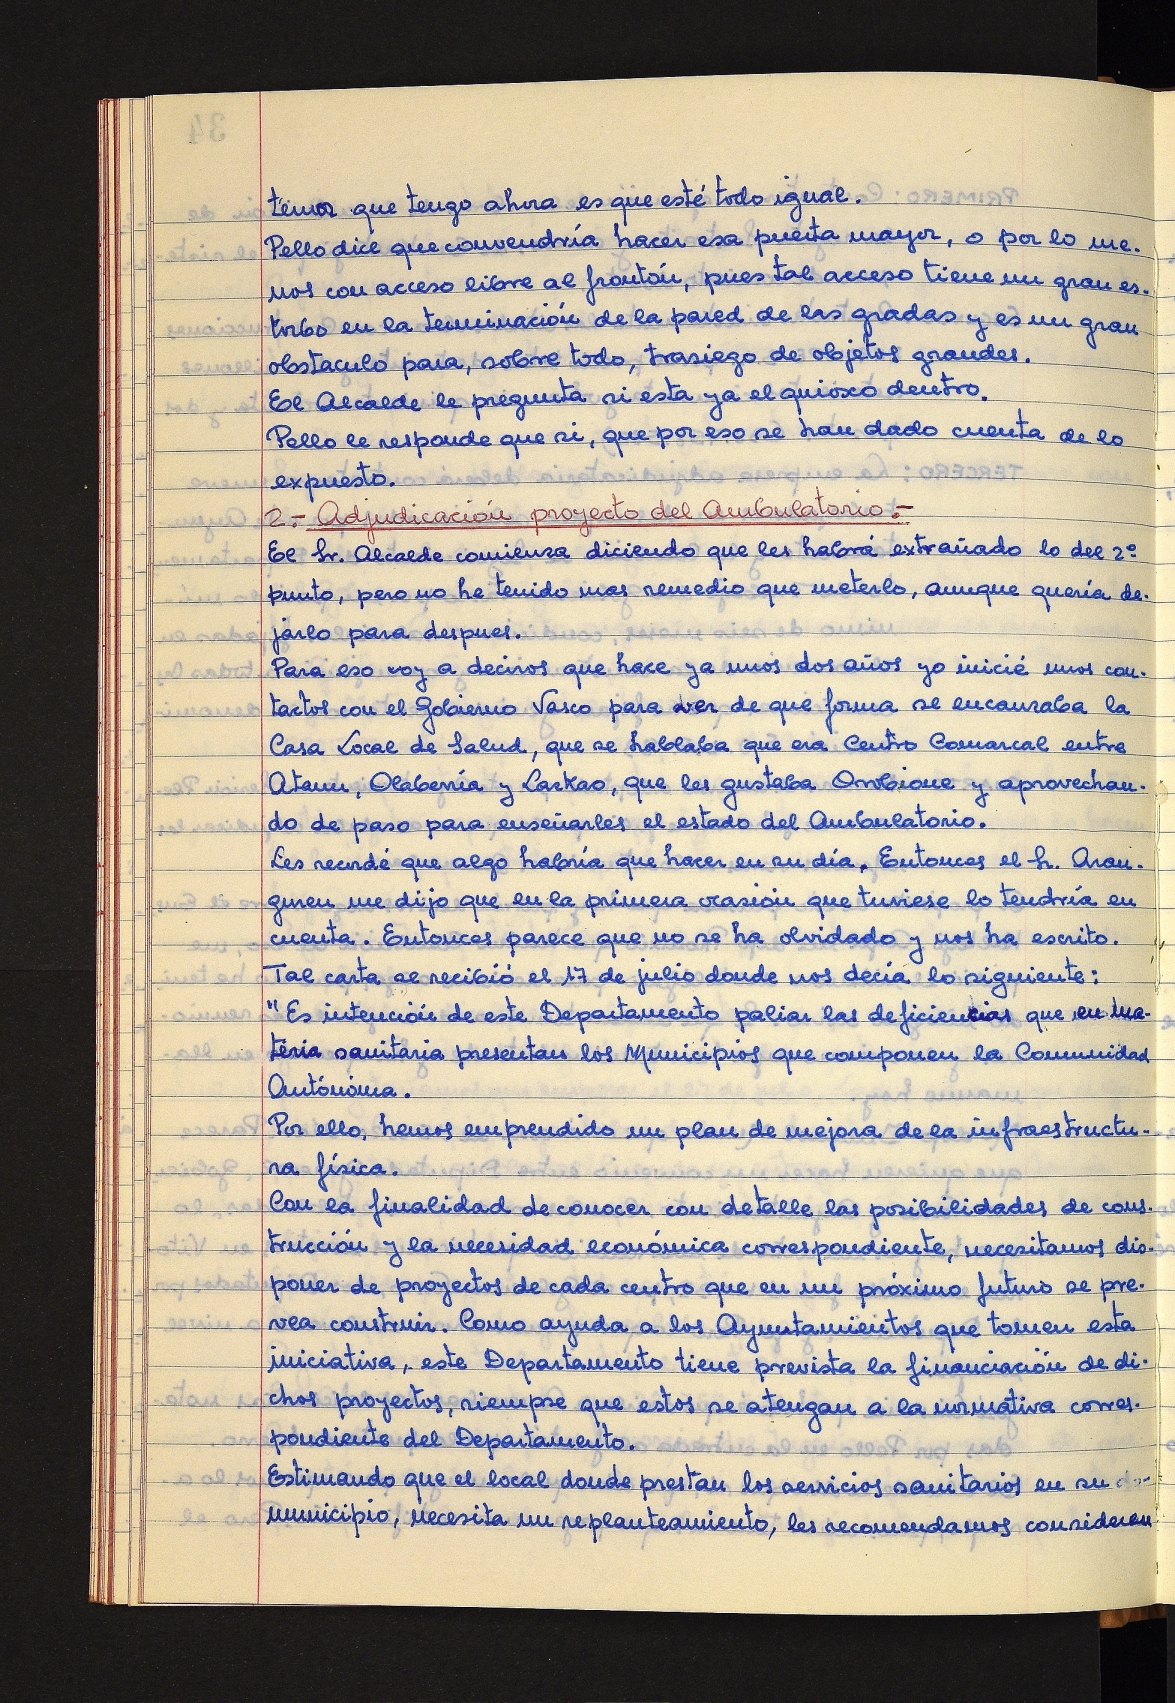 temor que tengo ahora es que esté todo igual.
Pello dice que convendría hacer esa puerta mayor, o por lo me-
nos con acceso libre al frontón, pues tal acceso tiene un gran es-
torbo en la terminación de la pared de las gradas y es un gran
obstaculo para, sobre todo, trasiego de objetos grandes.
El Alcalde le pregunta si esta ya el quiosco dentro.
Pello le responde que si, que por eso se han dado cuenta de lo
expuesto.
2.- Adjudicación proyecto del Ambulatorio.-
El Sr. Alcalde comienza diciendo que les habrá extrañado lo del 2º
punto, pero no he tenido mas remedio que meterlo, aunque quería de-
jarlo para despues.
Para eso voy a deciros que hace ya unos dos años yo inicié unos con-
tactos con el Gobierno Vasco para ver de que forma se encauzaba la
Casa Local de Salud, que se hablaba que era Centro Comarcal entre
Ataun, Olaberría y Lazkao, que les gustaba Orobione y aprovechan-
do de paso para enseñarles el estado del Ambulatorio.
Les recordé que algo habría que hacer en su día. Entonces el Sr. Aran-
guren me dijo que en la primera ocasión que tuviese lo tendría en
cuenta. Entonces parece que no se ha olvidado y nos ha escrito.
Tal carta se recibió el 17 de julio donde nos decía lo siguiente:
"Es intención de este Departamento paliar las deficiencias que en ma-
teria sanitaria presentan los Municipios que componen la Comunidad
Autónoma.
Por ello, hemos emprendido un plan de mejora de la infraestructu-
ra física.
Con la finalidad de conocer con detalle las posibilidades de cons-
trucción y la necesidad económica correspondiente, necesitamos dis-
poner de proyectos de cada centro que en un próximo futuro se pre-
vea construir. Como ayuda a los Ayuntamientos que tomen esta
iniciativa, este Departamento tiene prevista la financiación de di-
chos proyectos, siempre que estos se atengan a la normativa corres-
pondiente del Departamento.
Estimando que el local donde prestan los servicios sanitarios en su
municipio, necesita un replanteamiento, les recomendamos consideren